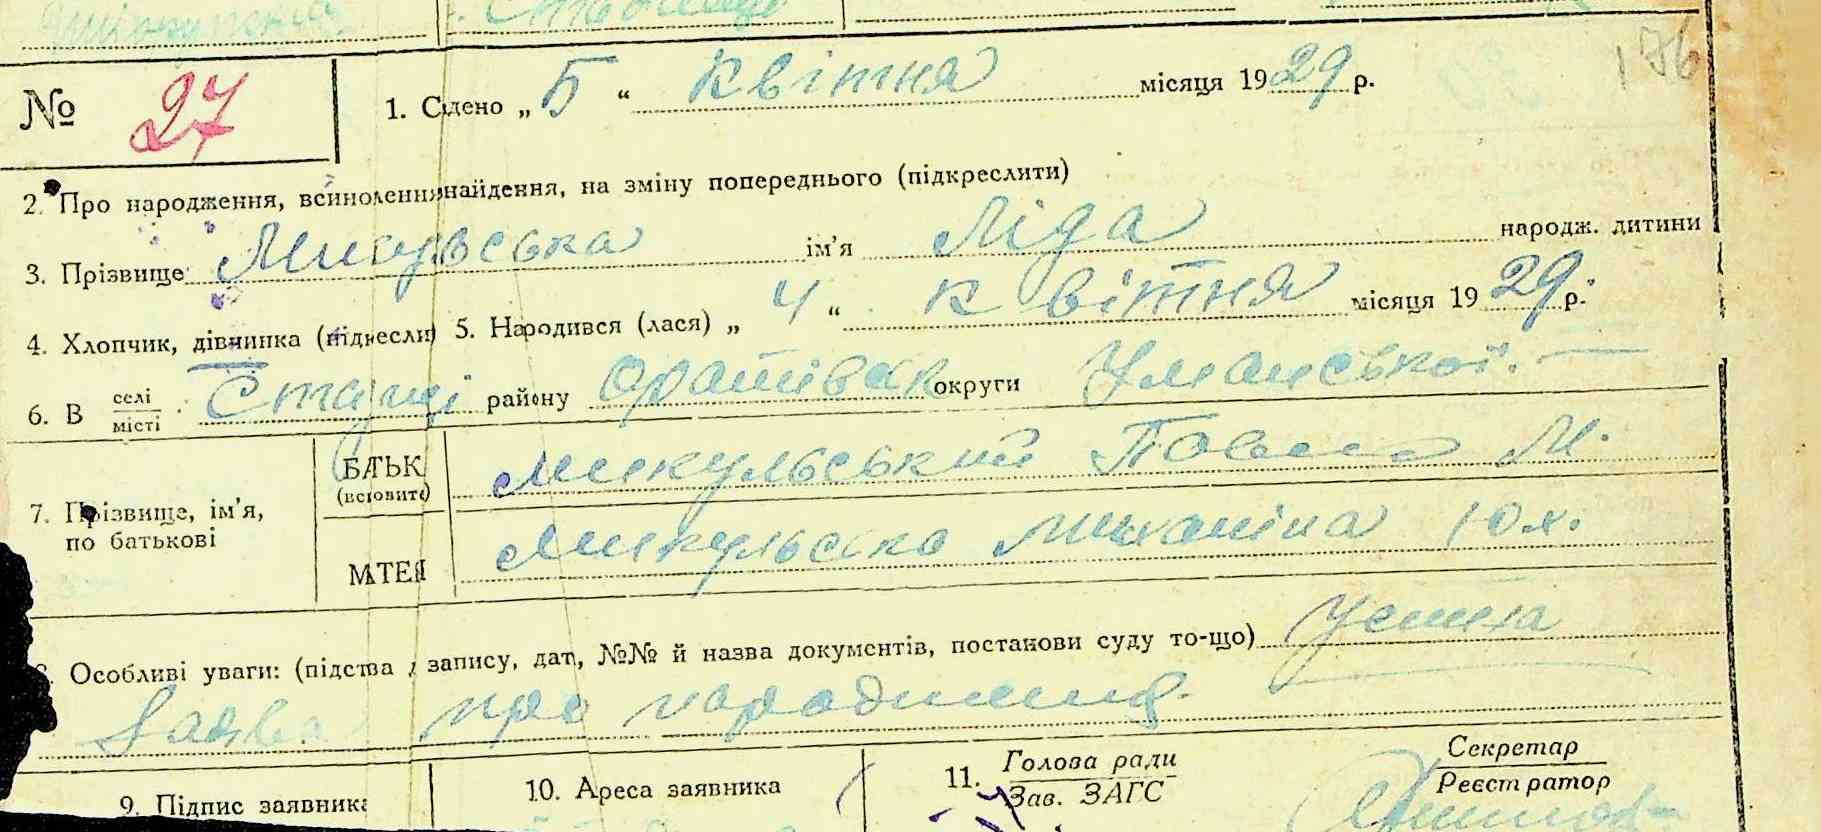 176
№ 27 1. Сдено „ 5 “ Квітня місяця 1929 р.
2. Про народження, всиноленнянайдення, на зміну попереднього (підкреслити)
3. Прізвище Микульська ім’я Ліда народж. дитини
4. Хлопчик, дівчинка (підкесли) 5. Народився (лася) „ 4 “ Квітня місяця 1929 р.
6. В селі/місті району Оратівськ округи Уманської.
7. Прізвище, ім’я, по батькові
БАТЬК (встовите) Микульський Павло М.
МАТЕІ Микульська Михаліна Юх.
8. Особливі уваги: (підства запису, дат, №№ й назва документів, постанови суду то-що) Устна
Заява про народження
9. Підпис заявника 10. Ареса заявника 11. Голова ради/Зав. ЗАГС Секретар/Реєстратор